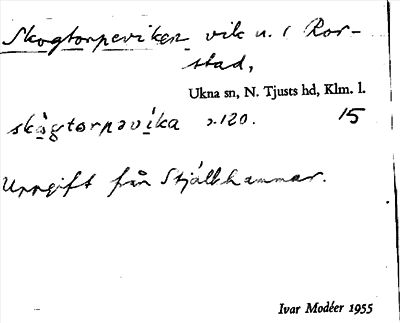 Skogtorpeviken vik n. i Ror-
stad,
Ukna sn, N. Tjusts hd, Klm. l.
skògtorpəvíka s.120. 15
Uppgift från Stjälkhammar.
Ivar Modéer 1955